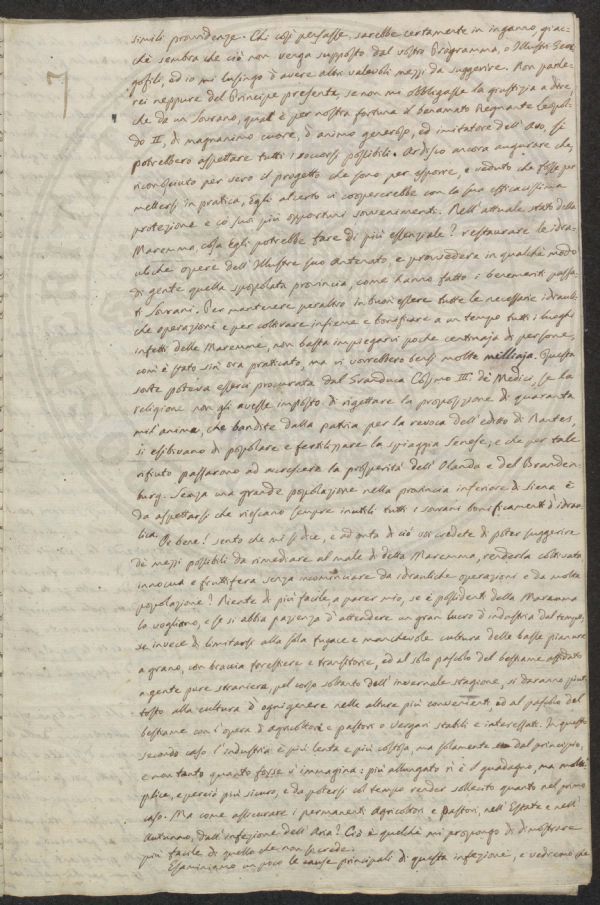 simili providenze. Chi così pensasse, sarebbe certamente in inganno, giac-
chè sembra che ciò non venga supposto dal vostro Programma, o Illustri Geor-
gofili, ed io mi lusingo d'avere altri valevoli mezzi da suggerire. Non parle-
rei neppure del Principe presente, se non mi obbligasse la giustizia a dire,
che da un Sovrano, qual è per nostra fortuna il benamato Regnante Leopol-
do II, di magnanimo cuore, d'animo generoso, ed imitatore dell'Avo, si
potrebbero aspettare tutti i soccorsi possibili. Ardisco ancora augurare che,
riconosciuto per vero il progetto che sono per esporre, e veduto che fosse per
mettersi in pratica, Egli al certo vi coopererebbe con la sua efficacissima
protezione e co' suoi più opportuni sovvenimenti. Nell'attuale stato della
Maremma cosa Egli potrebbe fare di più essenziale? restaurare le idra-
uliche opere dell'Illustre suo Antenato, e provvedere in qualche modo
di gente quella spopolata provincia, come hanno fatto i benemeriti passa-
ti Sovrani. Per mantenere peraltro in buon essere tutte le necessarie idrauli-
che operazioni e per coltivare insieme e bonificare a un tempo tutti i luoghi
infetti delle Maremme, non basta impiegarvi poche centinaja di persone,
com'è stato sin ora praticato, ma vi vorrebbero bensì molte migliaja. Questa
sorte poteva esserci procurata dal Granduca Cosimo III de' Medici, se la
religione non gli avesse imposto di rigettare la proposizione di quaranta
mil'anime, che bandite dalla patria per la revoca dell'editto di Nantes,
si esibivano di popolare e fertilizzare la spiaggia Senese, e che per tale
rifiuto passarono ad accrescere la prosperità dell'Olanda e del Branden-
burg. Senza una grande popolazione nella provincia inferiore di Siena è
da aspettarsi che riescano sempre inutili tutti i sovrani bonificamenti d'idrau-
lica.
Oh bene! sento che mi si dice, e ad onta di ciò voi credete di poter suggerire
de' mezzi possibili da rimediare al male di detta Maremma, renderla coltivata
innocua e fruttifera senza incominciare da idrauliche operazioni e da molta
popolazione? Niente di più facile a parer mio, se i possidenti della Maremma
lo vogliono, e se si abbia pazienza d'attendere un gran lucro d'industria dal tempo,
se invece di limitarsi alla sola fugace e manchevole cultura delle basse pianure
a grano, con braccia forestiere e transitorie, ed al solo pascolo del bestiame affidato
a gente pure straniera, pel corso soltanto dell'invernale stagione, si daranno piut-
tosto alla cultura d'ogni genere nelle alture più convenienti, ed al pascolo del
bestiame con l'opera di agricoltori e pastori o vergari stabili e interessati. In questo
secondo caso l'industria è più lenta e più costosa, ma solamente dal principio,
e non tanto quanto forse s'immagina: più allungato n'è il guadagno, ma molti-
plice, e perciò più sicuro, e da potersi col tempo render sollecito quanto nel primo
caso. Ma come assicurare i permanenti Agricoltori e Pastori, nell'Estate e nell'
Autunno, dall'infezione dell'Aria? Ciò è quel che mi propongo di dimostrare
più facile di quello che non si crede.
Esaminiamo un poco le cause principali di questa infezione, e vedremo che